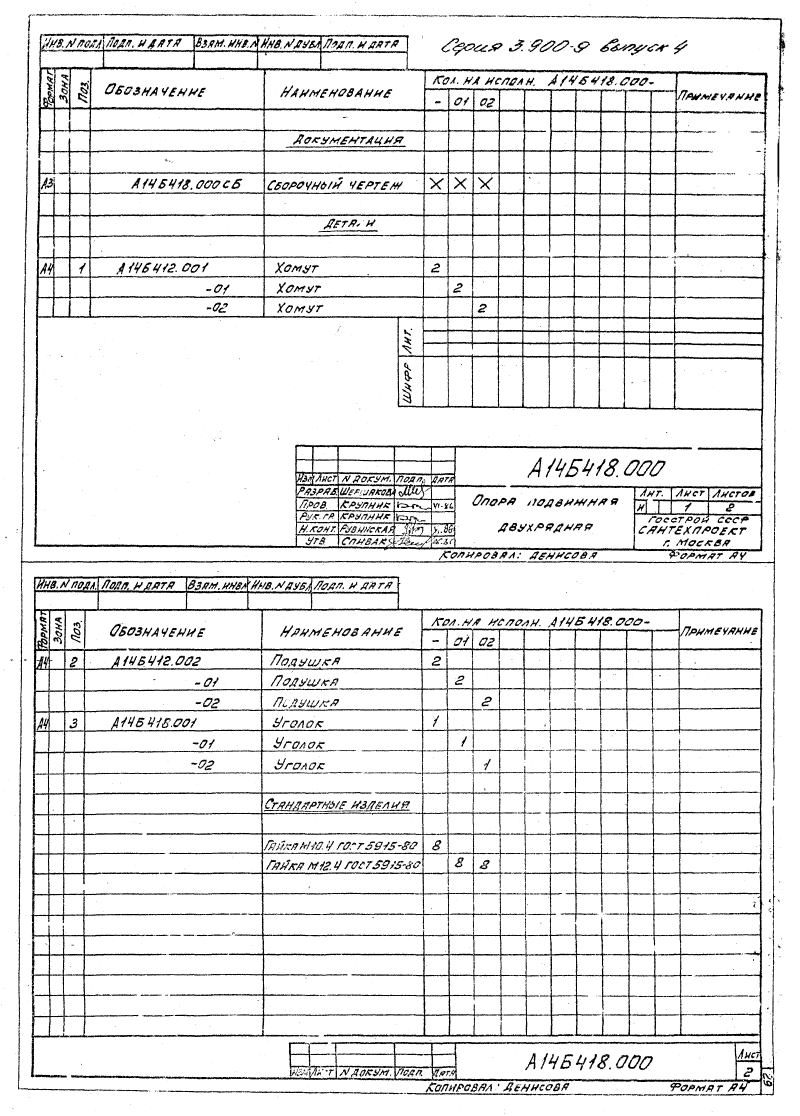 Инв. № подл. Подп. и дата Взам. инв. № Инв. № дубл. Подп. и дата
Серия 3.900-9 выпуск 4
Формат Зона Поз. Обозначение Наименование Кол. на исполн. А14Б418.000- Примечание
- 01 02
Документация
А3 А14Б418.000СБ Сборочный чертеж X X X
Детали
А4 1 А14Б412.001 Хомут 2
-01 Хомут 2
-02 Хомут 2
Лит.
Шифр
А14Б418.000
Изм Лист № докум. Подп. Дата
Разраб.
Пров. Крупник VI-86
Рук. гр. Крупник
Н.конт. Рувинская
Утв. Спивак
Опора подвижная
двухрядная
Лит. Лист Листов
И 1 2
Госстрой СССР
Сантехпроект
г. Москва
Копировал: Денисова Формат А4
Инв. № подл. Подп. и дата Взам. инв. № Инв. № дубл. Подп. и дата
Формат Зона Поз. Обозначение Наименование Кол. на исполн. А14Б418.000- Примечание
- 01 02
А4 2 А14Б412.002 Подушка 2
-01 Подушка 2
-02 Подушка 2
А4 3 А14Б418.001 Уголок 1
-01 Уголок 1
-02 Уголок 1
Стандартные изделия
Гайка М10.4 ГОСТ 5915-80 8
Гайка М12.4 ГОСТ 5915-80 8 8
Изм Лист № докум. Подп. Дата
А14Б418.000
Лист
2
Копировал: Денисова Формат А4
62